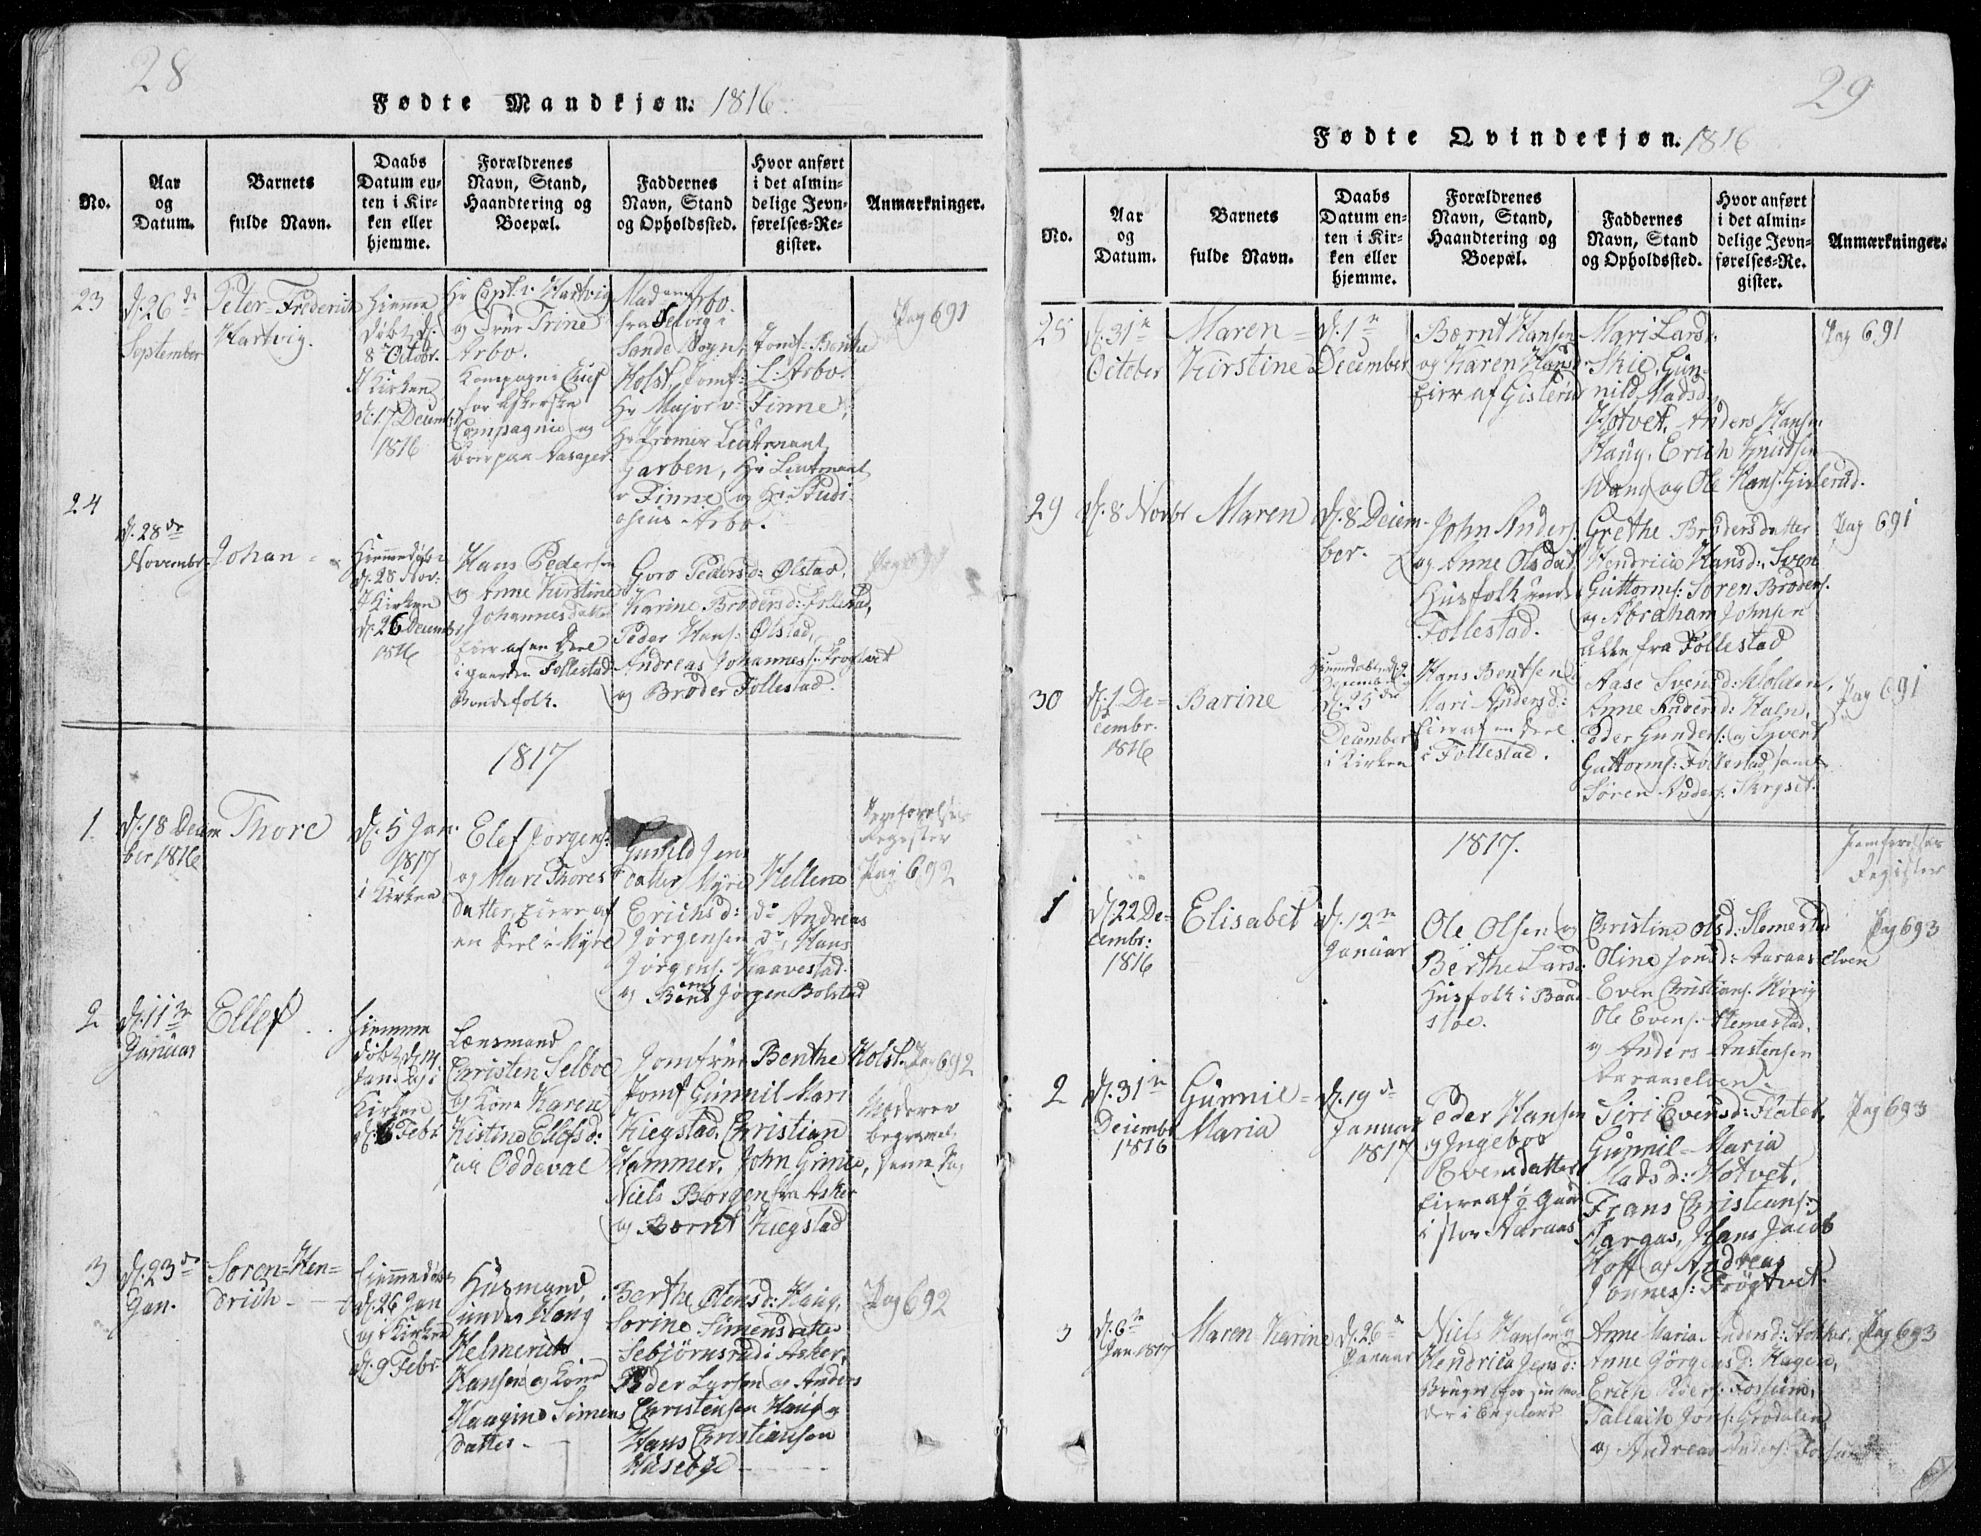 28
Fødte Mandkjøn. 1816.
No.
Aar
og
Datum.
Barnets
fulde Navn.
Daabs
Datum en-
ten i Kir-
ken eller
hjemme.
Forældrenes
Navn, Stand,
Haandtering og
Boepæl.
Faddernes
Navn, Stand
og Opholdssted.
Hvor anført
i det almin-
delige Jevn-
førelses-Re-
gister.
Anmærkninger.
23
d: 26de
September
Peter-Frederich
Hartvig.
Hjemme
døbt d:
8 Octobr.
I Kirken
d: 17 Decembr
1816
Hr Capt: v: Hartvig
og Frue Trine
Arbo.
Kompagni Chef
for Askerske
Compagnie og
Madame Arbo.
fra Selvig i
Sande Sogn, Jomf: Benthe
Holst, Jomf: L: Arbo.
Hr Major v: Finne,
Hr Premier Lieutnant
Garben, Hr Lieutnant
v Finne og Hr Studi-
osus Arbo.
Pag 691
24
d: 28de
Novembr.
Johan
Hjemmedøbt
d: 28 Nov:
I Kirken
d: 26 Decembr
1816
Hans Pedersen
og Anne Kirstine
Johannesdatter
Eier af en Deel
i gaarden Follestad
Bondefolk.
Goro Pedersd: Ølstad,
Karine Brodersd: Follestad,
Peder Hans: Ølstad,
Andreas Johanness: Frøgtvet
og Broder Follestad.
1817
1.
d: 18 Decem
ber 1816
Thore
d: 5 Jan.
1817
i Kirken
Elef Jørgens:
og Mari Thores
datter, Eiere af
en Deel i Myre
Gunild Jens
datter Myre Hellene
Erichsd: do Andreas
Jørgensen do, Hans
Jørgens: Haavestad.
og Jørgen Bolstad
Jemførelses
Register
Pag 692
2
d: 11te
Januar
Ellef
Hjemme
døbt d: 14
Jan. og i
Kirken
d: 6 Febr
Lænsmand
Christen Selboe
og Kone Karen
Kistine Ellefsd:
paa Oddeval
Jomfrue Benthe Holst.
Jomf Gunnil Mari
Kiegstad, Christian
Hammer, John Grinie,
Niels Borgen fra Asker
og Bernt Kiegstad
Pag 692
Moderen
begravet
samme Dag
3
d: 23de
Jan.
Soren-Hen-
drich
Hjemmedøbt
d: 26 Jan
og i Kirken
d: 9 Febr
Husmand
under Haug
Helmerich
Hansen og Kone
Haagine Simens
datter
Berthe Olensd: Haug,
Sorine Simensdatter
Sebjørnsrud i Asker,
Peder Larsen og Anders
Christensen Haug og
Hans Christiansen
Husebye
Pag 692
29
Fødte Qvindekjøn. 1816
No.
Aar
og
Datum.
Barnets
fulde Navn.
Daabs
Datum en-
ten i Kir-
ken eller
hjemme.
Forældrenes
Navn, Stand,
Haandtering og
Boepæl.
Faddernes
Navn, Stand
og Opholdssted.
Hvor anført
i det almin-
delige Jevn-
førelses-Re-
gister.
Anmærkninger.
25
d: 31te
October
Maren-
Kirstine
d: 1te
December
Bernt Hansen
og Karen Hansd
Eier af Gisterud
Mari Lars:
Skie, Gun-
nild Madsd.
Hotvet, Anders Hansen
Haug, Erich Knudsen
Wang og Ole Hans: Gisterud.
Pag 691
29
d: 8 Novbr
Maren
d: 8 Decem-
ber.
John Anders:
og Anne Olsdat:
Husfolk under
Follestad.
Grethe Brodersdatter
Hendrica Hansd: Sven
Guttorms: Soren Broders:
og Abraham Johnsen
alle fra Follestad
Pag 691
30
d: 1 De-
cembr.
1816
Barine
Hjemmedøbt d: 9
December
d: 25de
December
i Kirken
Hans Bentsen
Mari Andersd:
Eier af en Deel
i Follestad.
Aase Svensd: Holden,
Anne Andersd: Haln,
Peder Gunders: og Syvert
Guttorms: Follestad samt
Søren Anders: Skryset.
Pag 691
1817.
Jemførelses
Register
1
d: 22 De-
cembr:
1816
Elisabet
d: 12te
Januar
Ole Olsen og
Berthe Larsd:
Husfolk i Baad
støe.
Christine Olsd: Slemestad
Oline Jonsd: Aaraaselven
Even Christians: Nørig
Ole Evens: Slemestad,
og Anders Anstensen
Aaraaselven.
Pag 693
2
d: 31te
Decembr
1816
Gunnil-
Maria
d: 19de
Januar
1817
Peder Hansen
og Ingebor
Evensdatter
Eiere af ½ Gaard
i stor Aaraas
Siri Evensd: Flatet,
Gunnil-Maria
Madsd: Hotvet,
Frans Christians:
Aaraas, Hans Jacob
Hoff og Andreas
Jonnes: Frøgtvet.
Pag 693
3
d: 6te
Jan. 1817
Maren Karine
d: 26de
Januar
Niels Hansen og
Hendrica Jensd:
Bruger for sin Mo
der i Engeland
Anne Maria Andersd: Stokker,
Anne Jørgensd: Hagen,
Erich Peders: Fossum,
Tallach Jons: Grodalen
og Andreas Anders: Fossum
Pag 693